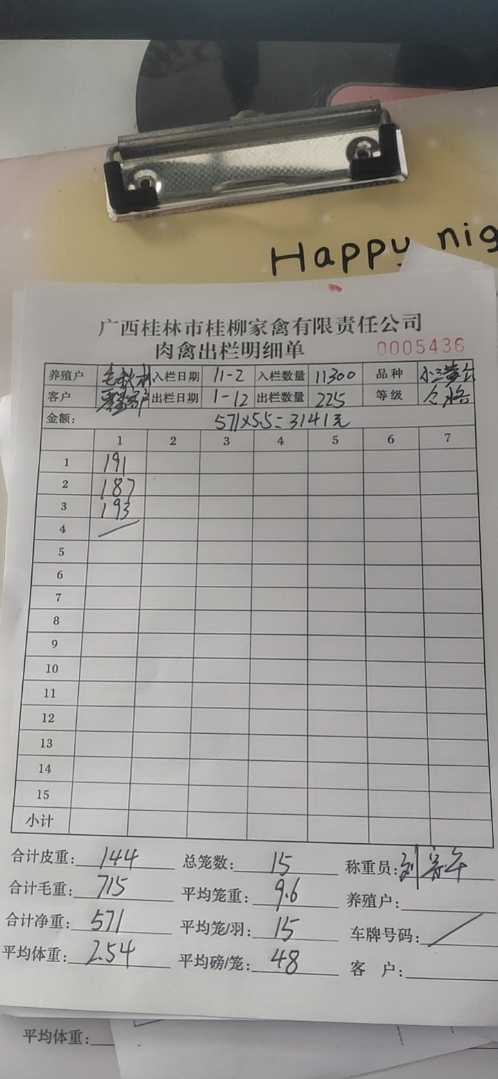 Happy nig
广西桂林市桂柳家禽有限责任公司
肉禽出栏明细单 0005436
养殖户 入栏日期 11-2 入栏数量 11300 品种
客户 出栏日期 1-12 出栏数量 225 等级 合格
金额: 571×5.5=3141元
1 2 3 4 5 6 7
1 191
2 187
3 193
4
5
6
7
8
9
10
11
12
13
14
15
小计
合计皮重: 144 总笼数: 15 称重员: 刘
合计毛重: 715 平均笼重: 9.6 养殖户:
合计净重: 571 平均笼/羽: 15 车牌号码:
平均体重: 2.54 平均磅/笼: 48 客 户:
平均体重: